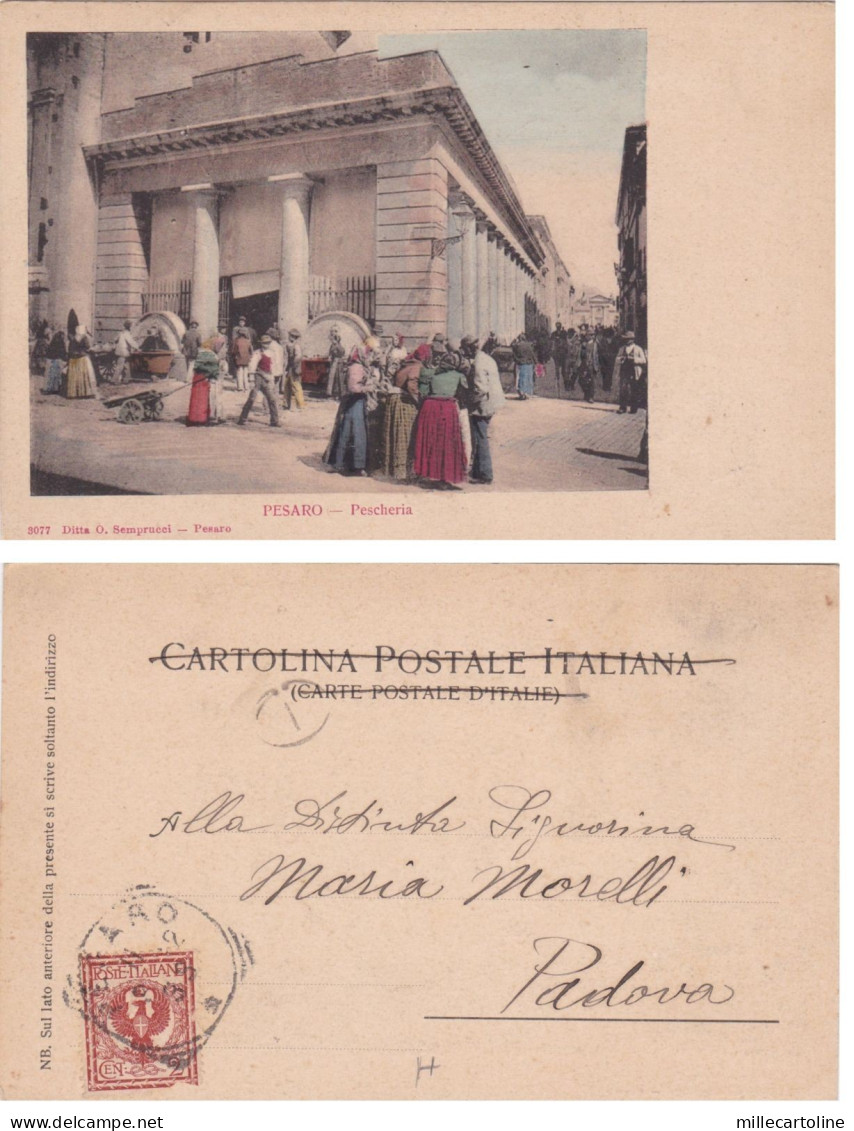 PESARO — Pescheria
3077 Ditta O. Semprucci — Pesaro
CARTOLINA POSTALE ITALIANA
(CARTE POSTALE D'ITALIE)
NB. Sul lato anteriore della presente si scrive soltanto l'indirizzo
Alla Distinta Signorina
Maria Morelli
Padova
POSTE·ITALIANE
CEN. 2
millecartoline